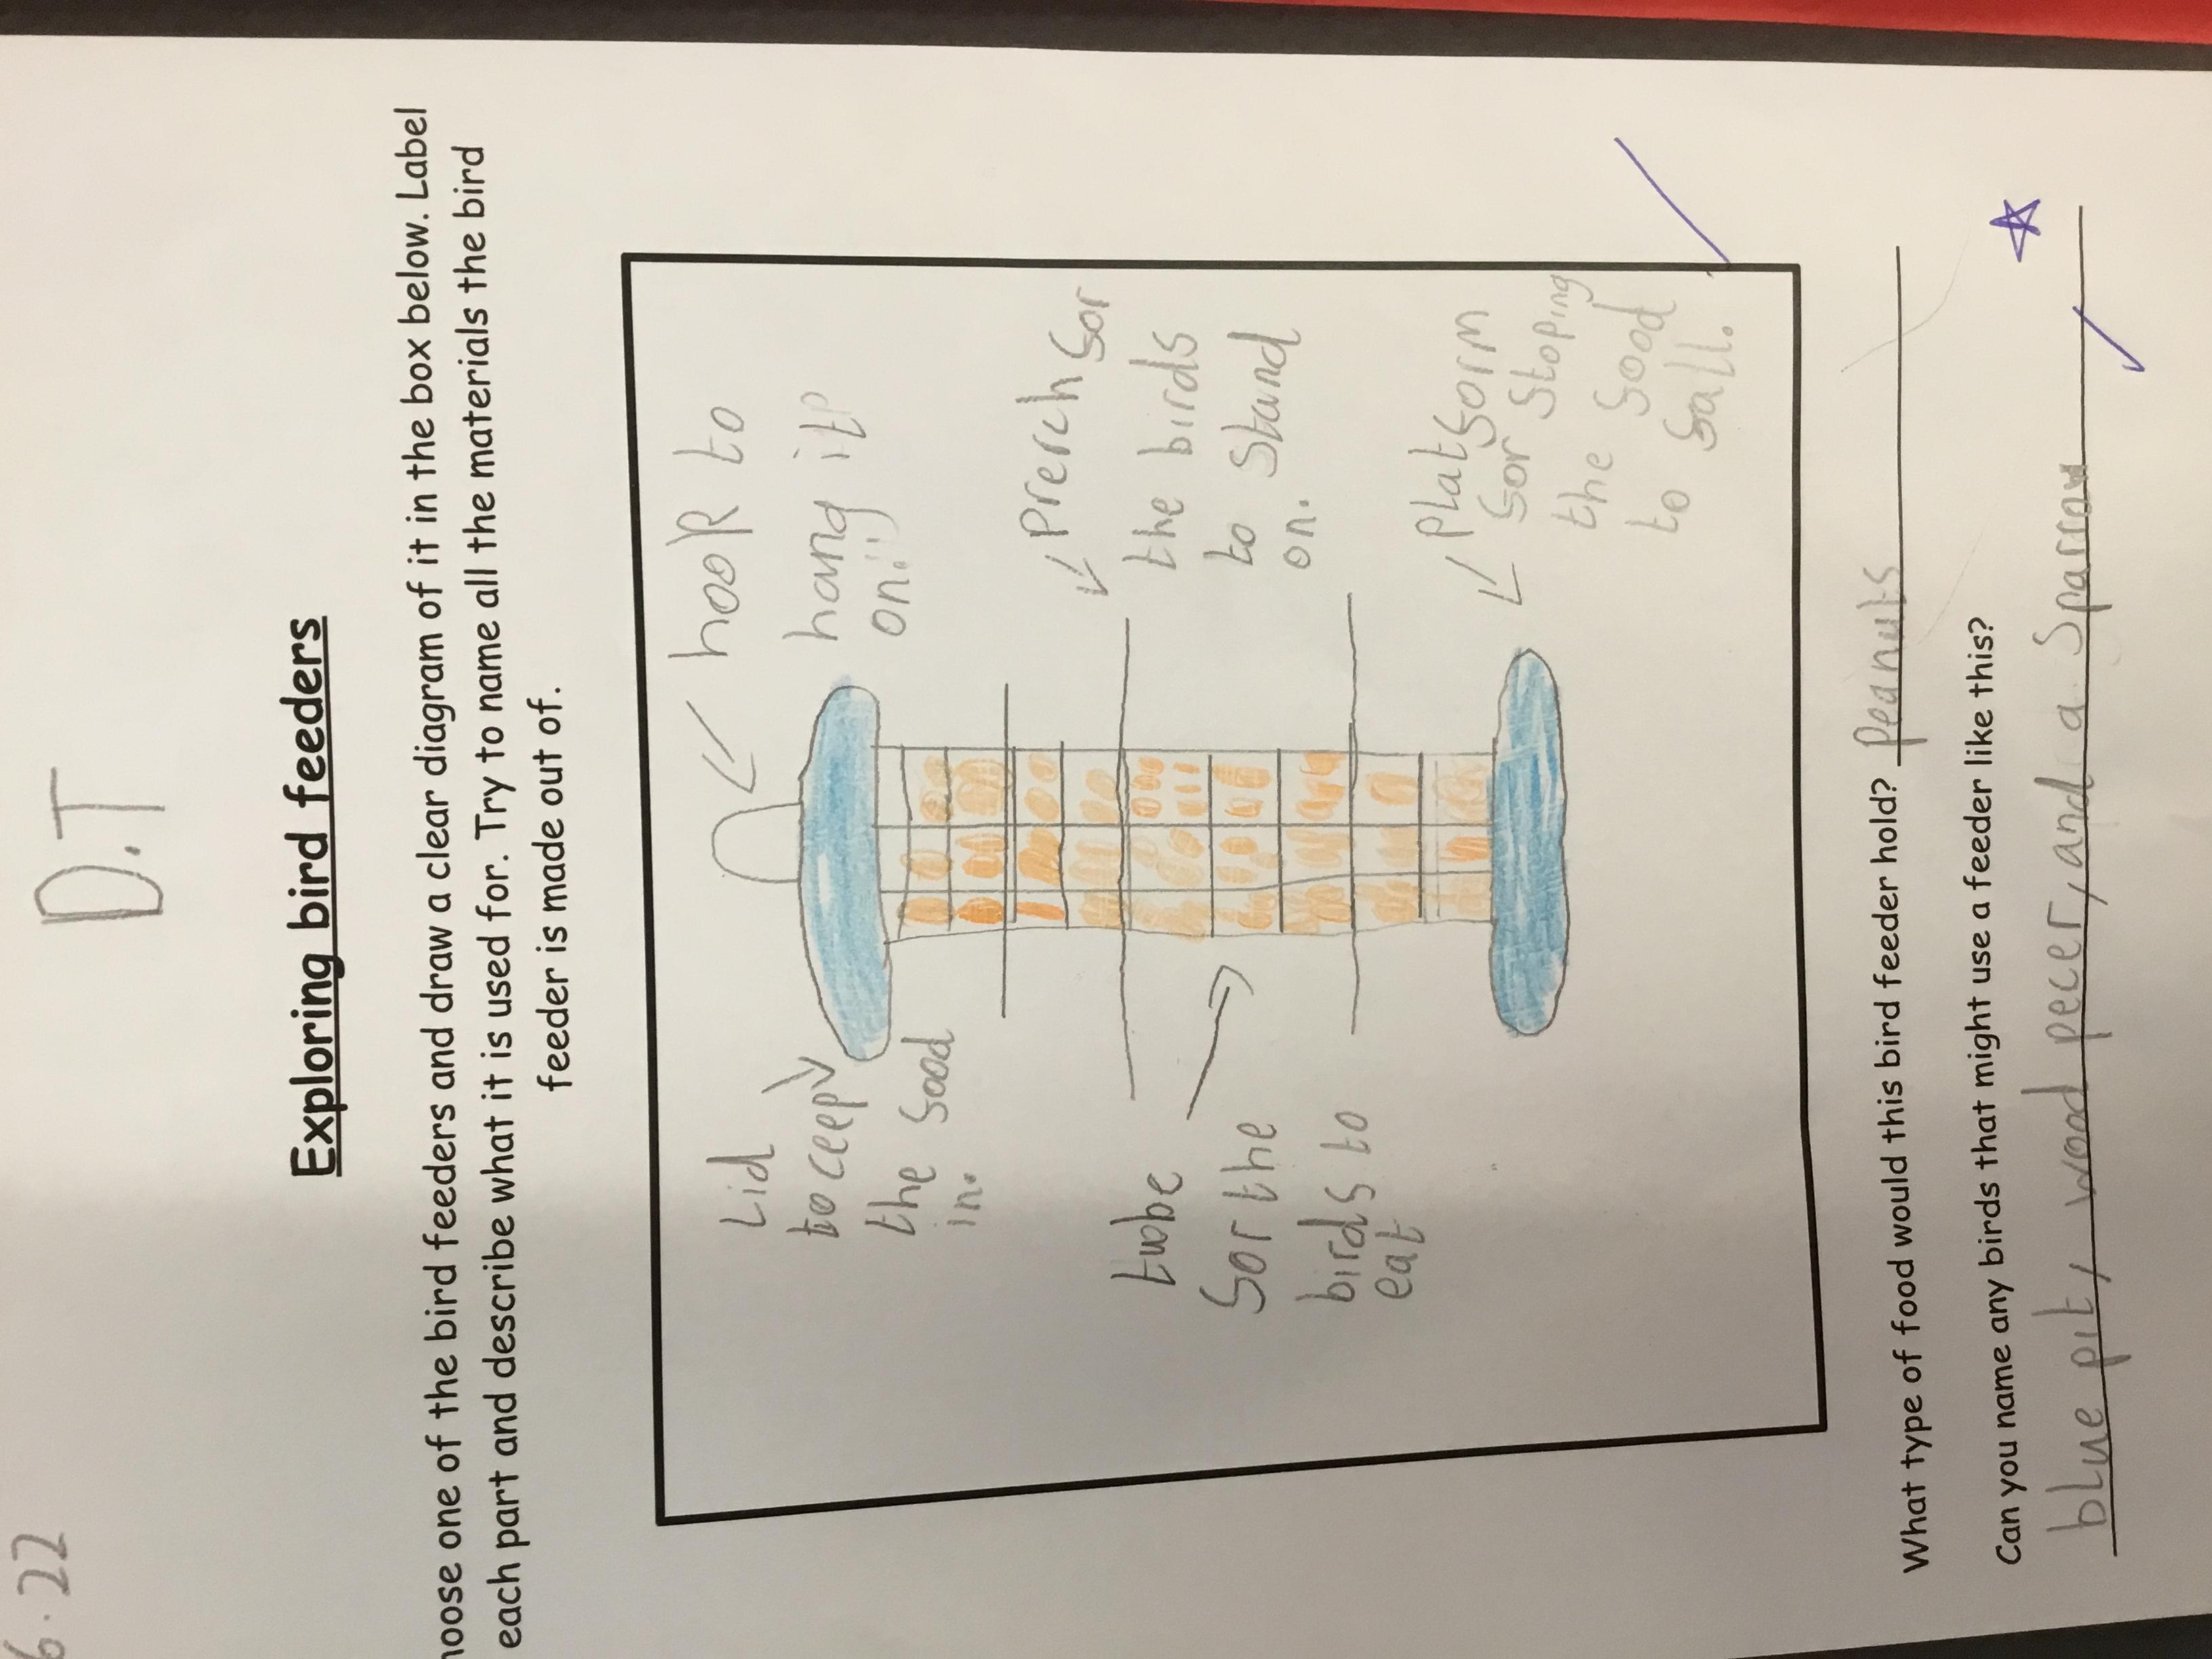 6.22
D.T
Exploring bird feeders
hoose one of the bird feeders and draw a clear diagram of it in the box below. Label
each part and describe what it is used for. Try to name all the materials the bird
feeder is made out of.
hook to
hang it
on.
Lid
to ceep
the food
in.
Prerch for
the birds
to stand
on.
tube
for the
birds to
eat
Platform
for stoping
the food
to
fall.
What type of food would this bird feeder hold? Peanuts
Can you name any birds that might use a feeder like this?
blue pit, wood pecer, and a sparrow